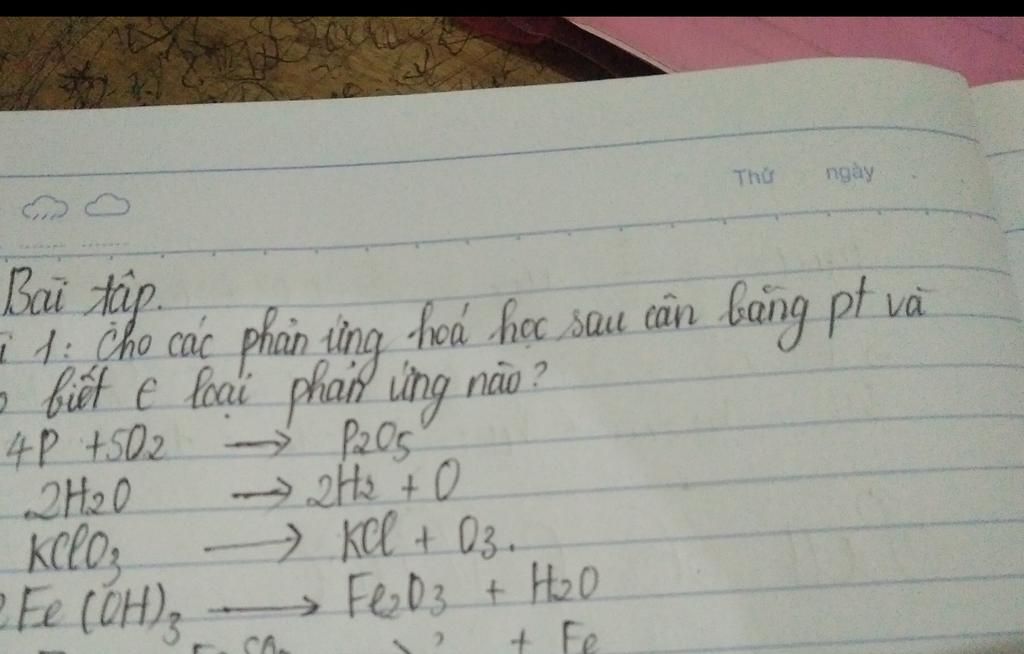 Thứ ngày
Bài tập.
1: Cho các phản ứng hoá học sau cân bằng pt và
biết ∈ loại phản ứng nào?
4P + 5O2 → P2O5
2H2O → 2H2 + O
KClO3 → KCl + O3.
Fe(OH)3 → Fe2O3 + H2O
+ Fe